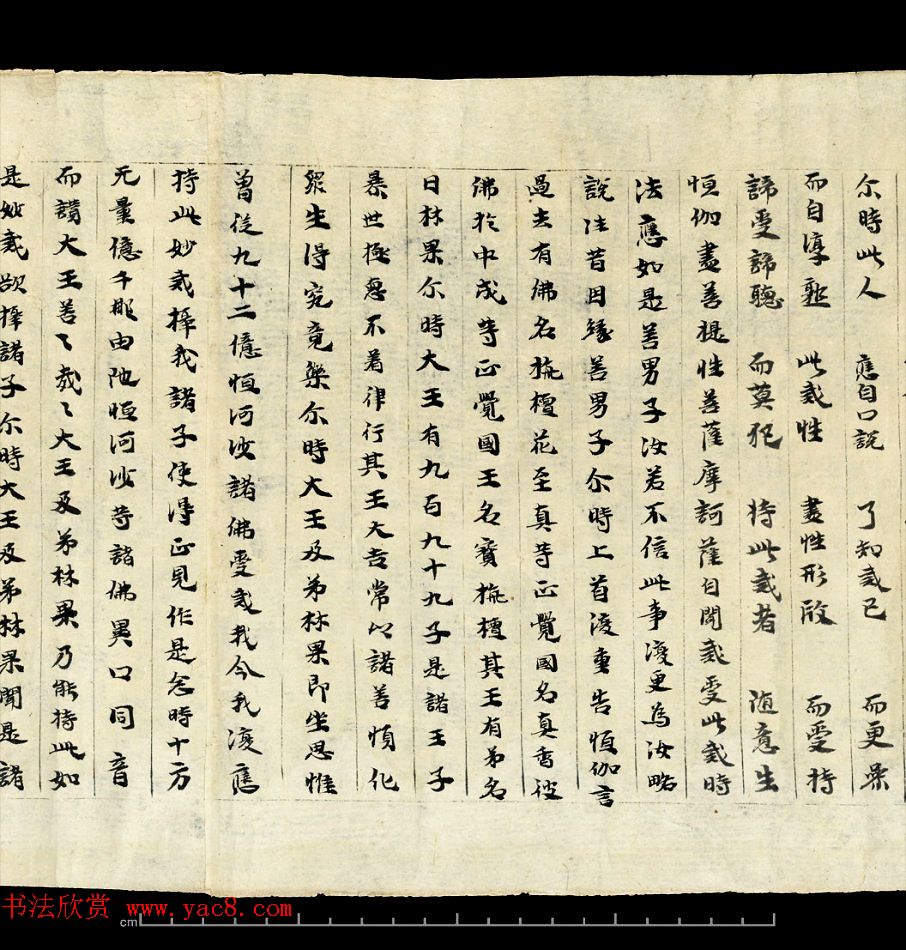 尒時此人 應自口說 了知戒已 而更
而自淳 此戒性 盡性形 而受持
諦受諦聽 而莫犯 持此戒者 随意生
恒伽盡善根性善薩摩訶薩自聞戒受此戒時
法應如是善男子汝若不信此事復更為汝略
說往昔因緣善男子尒時上首復重告恒伽言
過去有佛名栴檀花至真等正覺國名真香彼
佛於中成等正覺國王名寶栴檀其王有弟名
曰林果尒時大王有九百九十九子是諸王子
暴世極惡不着律行其王大吉常以諸善順化
眾生得究竟樂尒時大王及弟林果即坐思惟
曾從九十二億恒河沙諸佛受戒我今我復應
持此妙戒擇我諸子使得正見作是念時十方
无量億千那由他恒河沙等諸佛異口同音
而讚大王善〻哉〻大王及弟林果乃能持此如
是妙戒欲擇諸子尒時大王及弟林果聞是諸
书法欣赏 www.yac8.com
cm